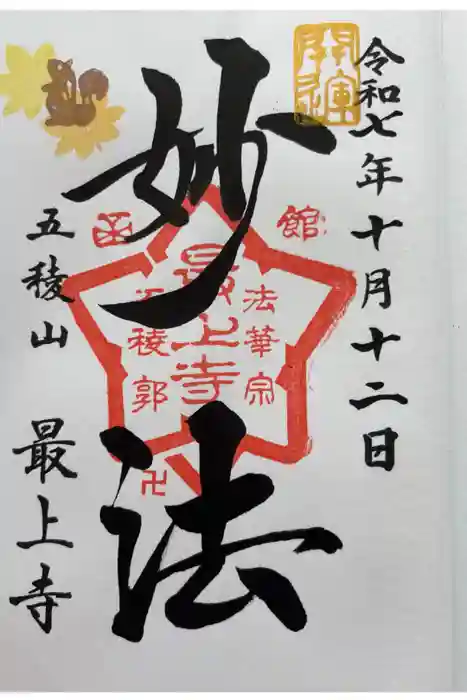 令和七年十月十二日
開運
妙法
函館
法華宗
最上寺
五稜郭
卍
五稜山
最上寺